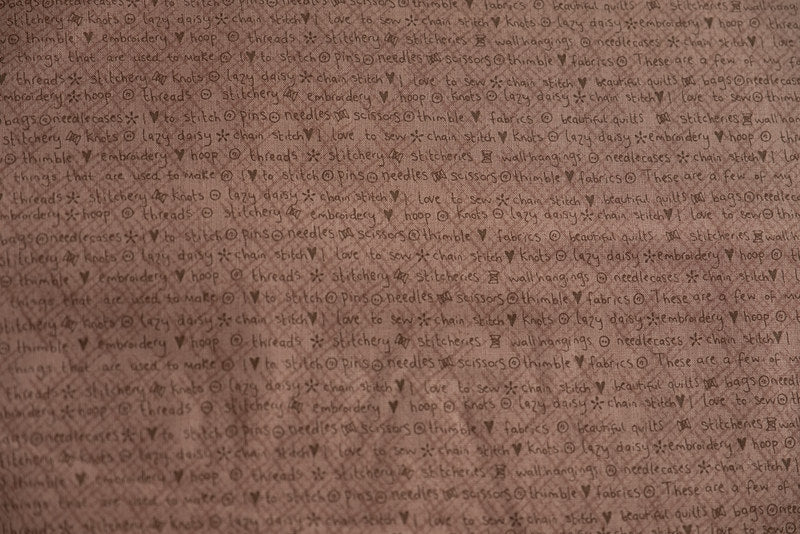 bags needlecases I ♥ to stitch pins needles scissors thimble ♥ fabrics beautiful quilts stitcheries wall
stitchery knots lazy daisy chain stitch ♥ I love to sew chain stitch ♥ knots lazy daisy embroidery ♥ hoop threads
thimble ♥ embroidery ♥ hoop threads stitchery stitcheries wallhangings needlecases chain stitch ♥ I love
things that are used to make I ♥ to stitch pins needles scissors thimble ♥ fabrics These are a few of my
♥ threads stitchery knots lazy daisy chain stitch ♥ I love to sew chain stitch ♥ beautiful quilts bags needlecases
embroidery hoop threads stitchery embroidery ♥ hoop knots lazy daisy chain stitch ♥ I love to sew
bags needlecases I ♥ to stitch pins needles scissors thimble ♥ fabrics beautiful quilts stitcheries wall
stitchery knots lazy daisy chain stitch ♥ I love to sew chain stitch ♥ knots lazy daisy embroidery ♥ hoop
thimble ♥ embroidery ♥ hoop threads stitchery stitcheries wallhangings needlecases chain stitch ♥ I
things that are used to make I ♥ to stitch pins needles scissors thimble ♥ fabrics These are a few of my
threads stitchery knots lazy daisy chain stitch ♥ I love to sew chain stitch ♥ beautiful quilts bags
embroidery hoop threads stitchery embroidery ♥ hoop knots lazy daisy chain stitch ♥ I love to sew
bags needlecases I ♥ to stitch pins needles scissors thimble ♥ fabrics beautiful quilts stitcheries wall
stitchery knots lazy daisy chain stitch ♥ I love to sew chain stitch ♥ knots lazy daisy embroidery ♥ hoop
thimble ♥ embroidery ♥ hoop threads stitchery stitcheries wallhangings needlecases chain stitch ♥ I
things that are used to make I ♥ to stitch pins needles scissors thimble ♥ fabrics These are a few of my
stitchery knots lazy daisy chain stitch ♥ I love to sew chain stitch ♥ knots lazy daisy embroidery ♥ hoop
thimble ♥ embroidery ♥ hoop threads stitchery stitcheries wallhangings needlecases chain stitch ♥ I
things that are used to make I ♥ to stitch pins needles scissors thimble ♥ fabrics These are a few of my
threads stitchery knots lazy daisy chain stitch ♥ I love to sew chain stitch ♥ beautiful quilts bags
embroidery hoop threads stitchery embroidery ♥ hoop knots lazy daisy chain stitch ♥ I love to sew
bags needlecases I ♥ to stitch pins needles scissors thimble ♥ fabrics beautiful quilts stitcheries wall
stitchery knots lazy daisy chain stitch ♥ I love to sew chain stitch ♥ knots lazy daisy embroidery ♥ hoop
thimble ♥ embroidery ♥ hoop threads stitchery stitcheries wallhangings needlecases chain stitch ♥
things that are used to make I ♥ to stitch pins needles scissors thimble ♥ fabrics These are a few of
threads stitchery knots lazy daisy chain stitch ♥ I love to sew chain stitch ♥ beautiful quilts bags
I love to sew